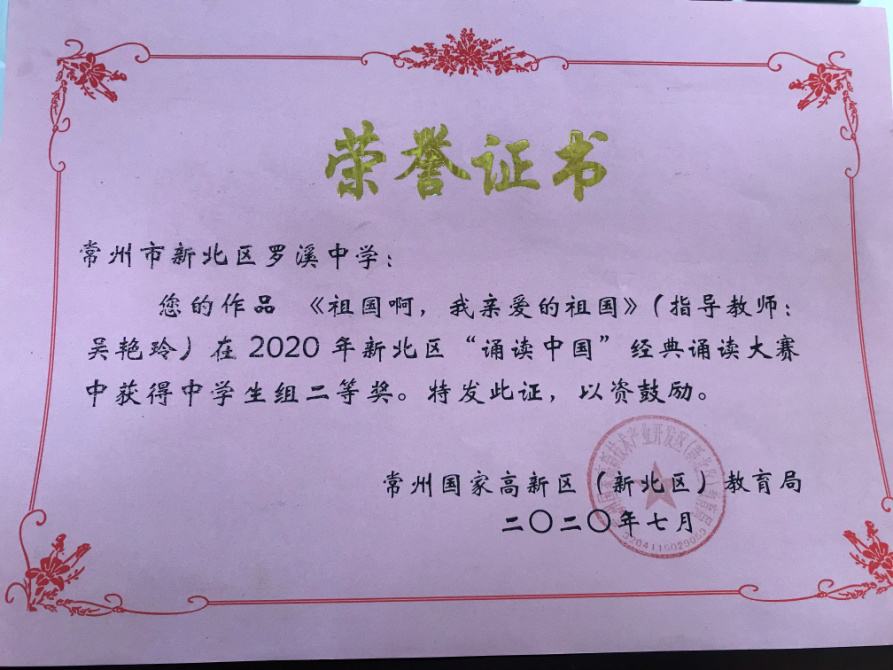 荣誉证书
常州市新北区罗溪中学：
您的作品 《祖国啊，我亲爱的祖国》（指导教师：
吴艳玲）在 2020 年新北区“诵读中国”经典诵读大赛
中获得中学生组二等奖。特发此证，以资鼓励。
常州国家高新区（新北区）教育局
二〇二〇年七月